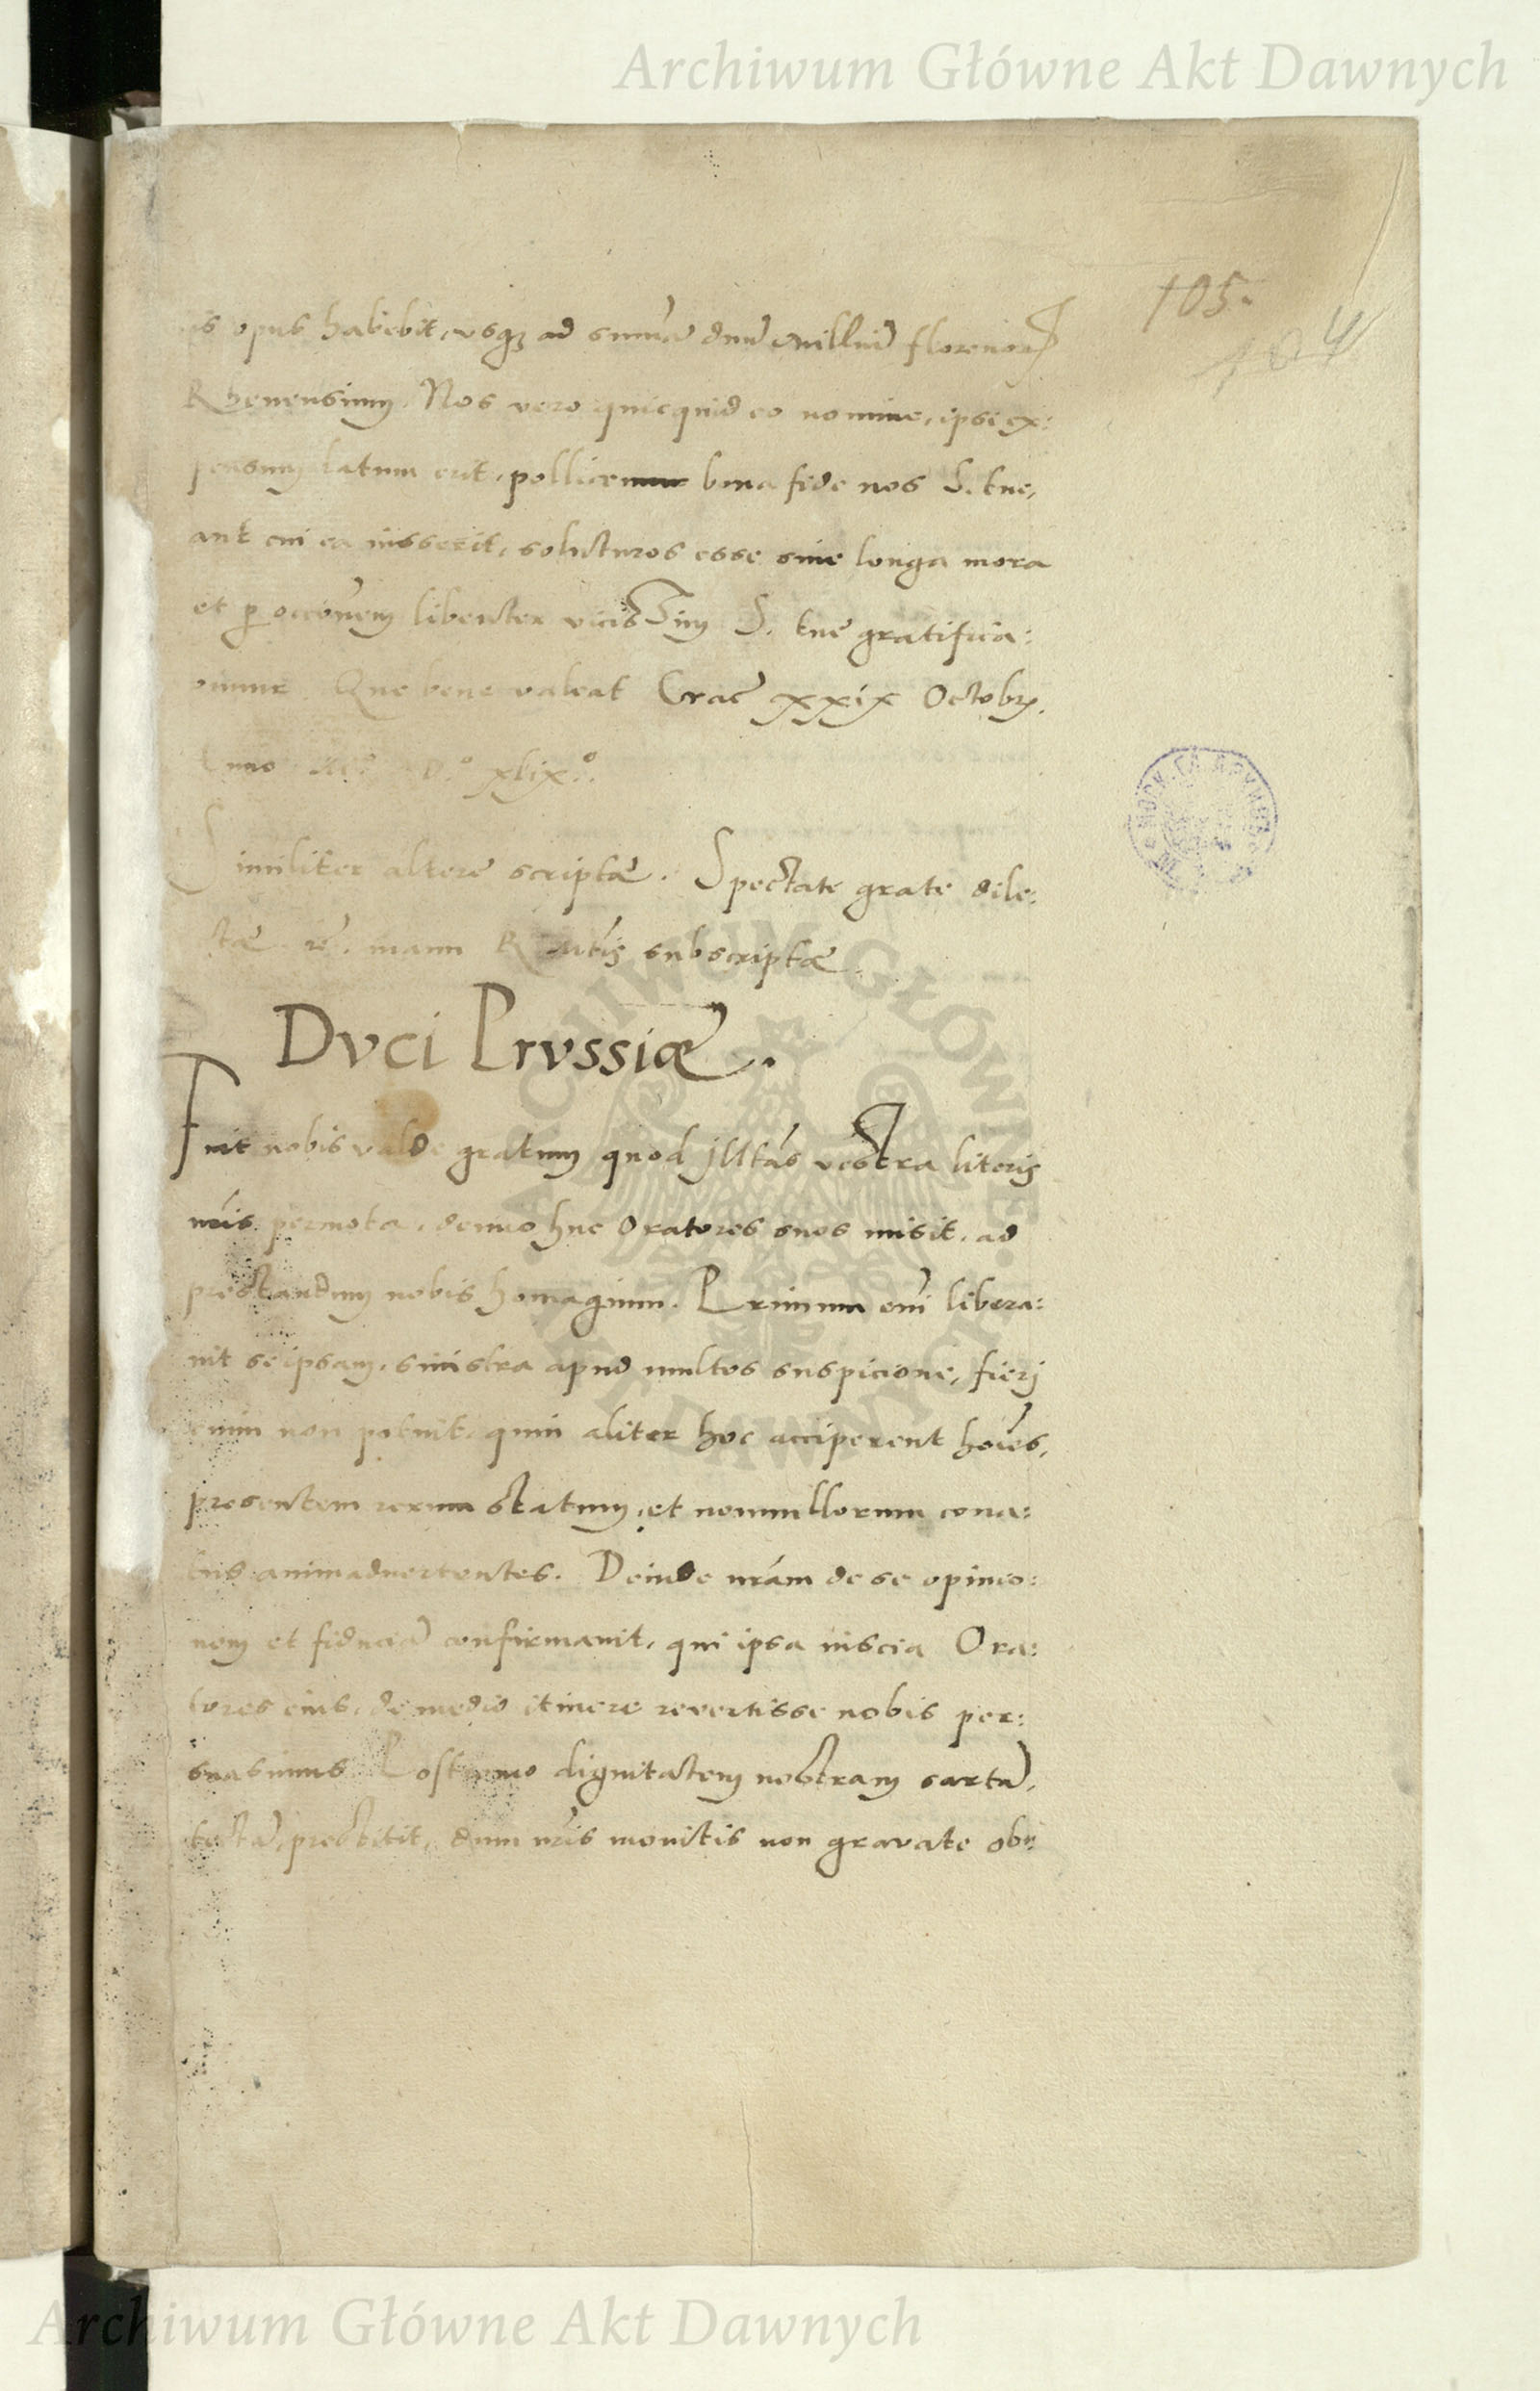 Archiwum Główne Akt Dawnych
105.
104
is opus habebit, usq3 ad sum̄ā duū milliū florenor
Rhenensium. Nos vero quicquid eo nomine, ipsi ex:
pensum latum erit, pollicemur bona fide nos S. tue,
aut cui ea iusserit, soluturos esse sine longa mora
et p occōnem libenter vicissim S. tuē gratifica:
bimur. Que bene valeat Crac̄ xxix Octobr.
Anno D.º xlix.º
Similiter alterę scriptę. Spectate grate dile:
ctę. manu R Mt̄is subscriptę.
DVCI PrVSSIÆ.
Fuit nobis valde gratum quod Illt̄as vestra literis
nr̄is permota, denuo huc Oratores suos misit, ad
prestandum nobis homagium. Primum em̄ libera:
vit se ipsam, sinistra apud multos suspicione, fieri
enim non potuit, quin aliter hoc acciperent hoīes,
presentem rerum statum, et nonnullorum cona:
tus animadvertentes. Deinde nr̄am de se opinio:
nem et fiduciā confirmavit, qui ipsa inscia Ora:
tores eius, de medio itinere revertisse nobis per:
suasimus. Postremo dignitatem nostram sartā,
tectā, prestitit, dum nr̄is monitis non gravate ob
ARCHIWUM GŁÓWNE AKT DAWNYCH
Archiwum Główne Akt Dawnych